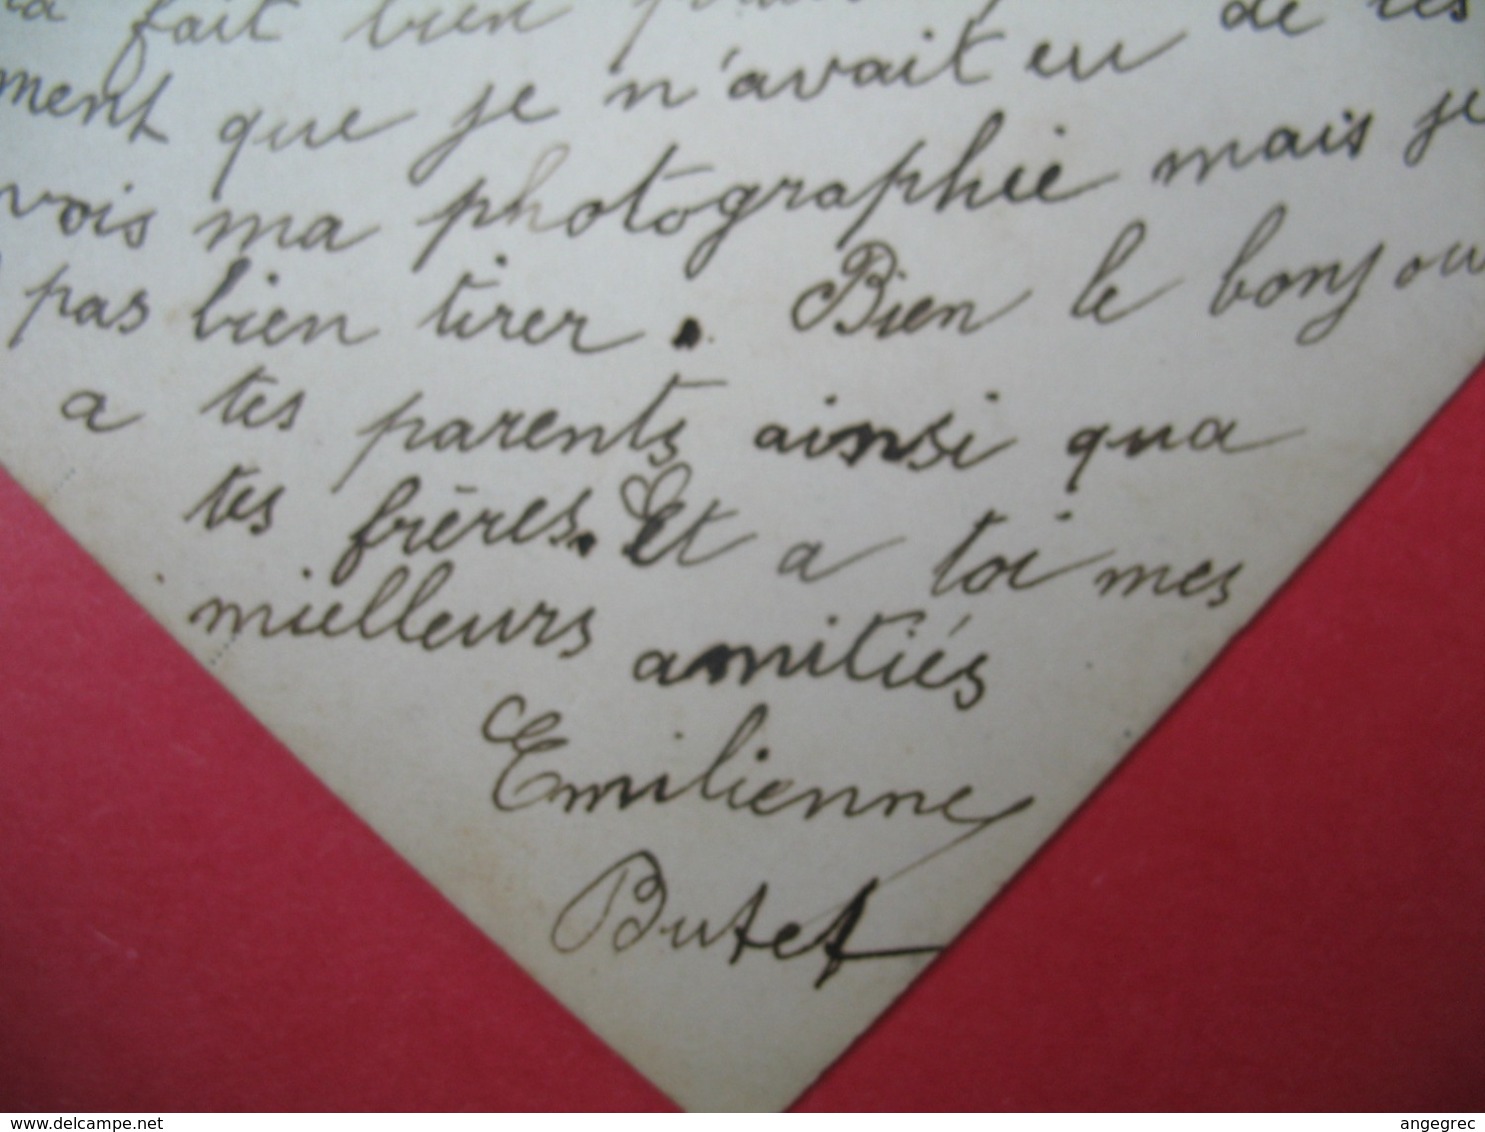 fait bien
ment que je n'avait eu de tes
vois ma photographie mais je
pas bien tirer. Bien le bonjou
a tes parents ainsi qua
tes frères. Et a toi mes
mielleurs amitiés
Emilienne
Butet
www.delcampe.net
angegrec